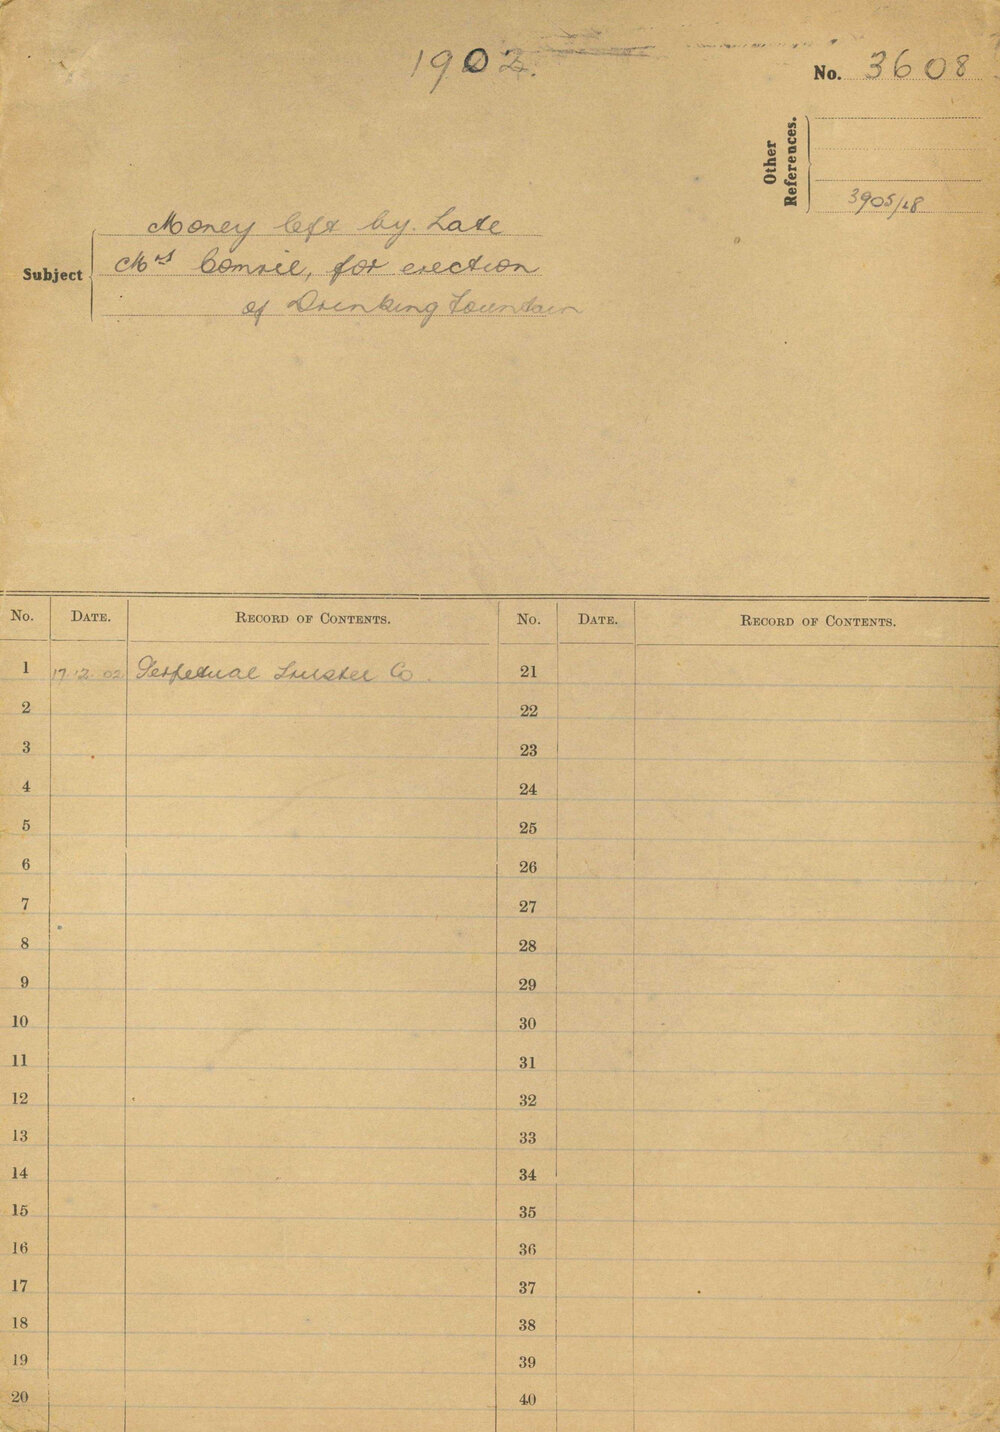 1902.
No. 3608
Other References.
3905/28
Subject
Money left by Late
Mrs Comrie, for erection
of Drinking Fountain
No. DATE. RECORD OF CONTENTS. No. DATE. RECORD OF CONTENTS.
1 17.12.02 Perpetual Trustee Co. 21
2 22
3 23
4 24
5 25
6 26
7 27
8 28
9 29
10 30
11 31
12 32
13 33
14 34
15 35
16 36
17 37
18 38
19 39
20 40